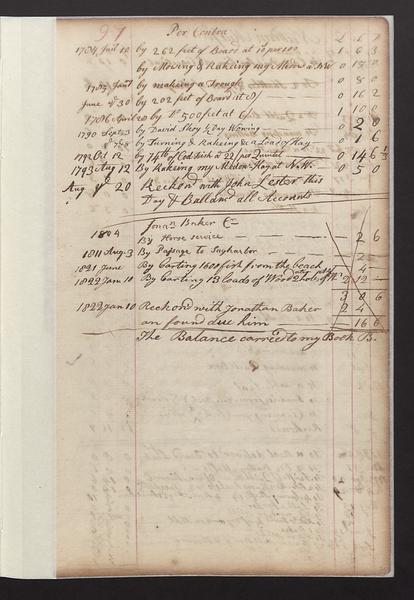 97 Per Contra £ s d
1784 Jan 12 by 262 feet of Board at 10 per 100 1 6 3
by Mowing & Rakeing my Medow a NW 0 18 0
1785 Jan by makeing a Trough 0 8 0
June ye 30 by 202 feet of Board at 8/ 0 16 2
1786 April 20 by Do 500 feet at 6/ 1 10 0
1790 Sept 3 by David Skoy ½ Day Mowing 0 2 0
by Turning & Rakeing & a Load of Hay 0 1 6
1792 Oct 12 by of Codfish a 22/ per Quintal 0 14 6 ½
1793 Aug 12 By Rakeing my Medow Hay at N.W. 0 5 0
Aug ye 20 Reckond with John Lester this
Day & Ballancd all Accounts
Jonan Baker Cr
1804 By Horse service 2 6
1811 Aug 3 By Passage to Sagharbor 2
1821 June By Carting 1600 fish from the beach 4
1822 Jan 10 By Carting 13 Loads of Wood 2 12
3 0 6
1822 Jan 10 Reckond with Jonathan Baker 2 4
an found due him 16 6
The Balance carreed to my Book B.